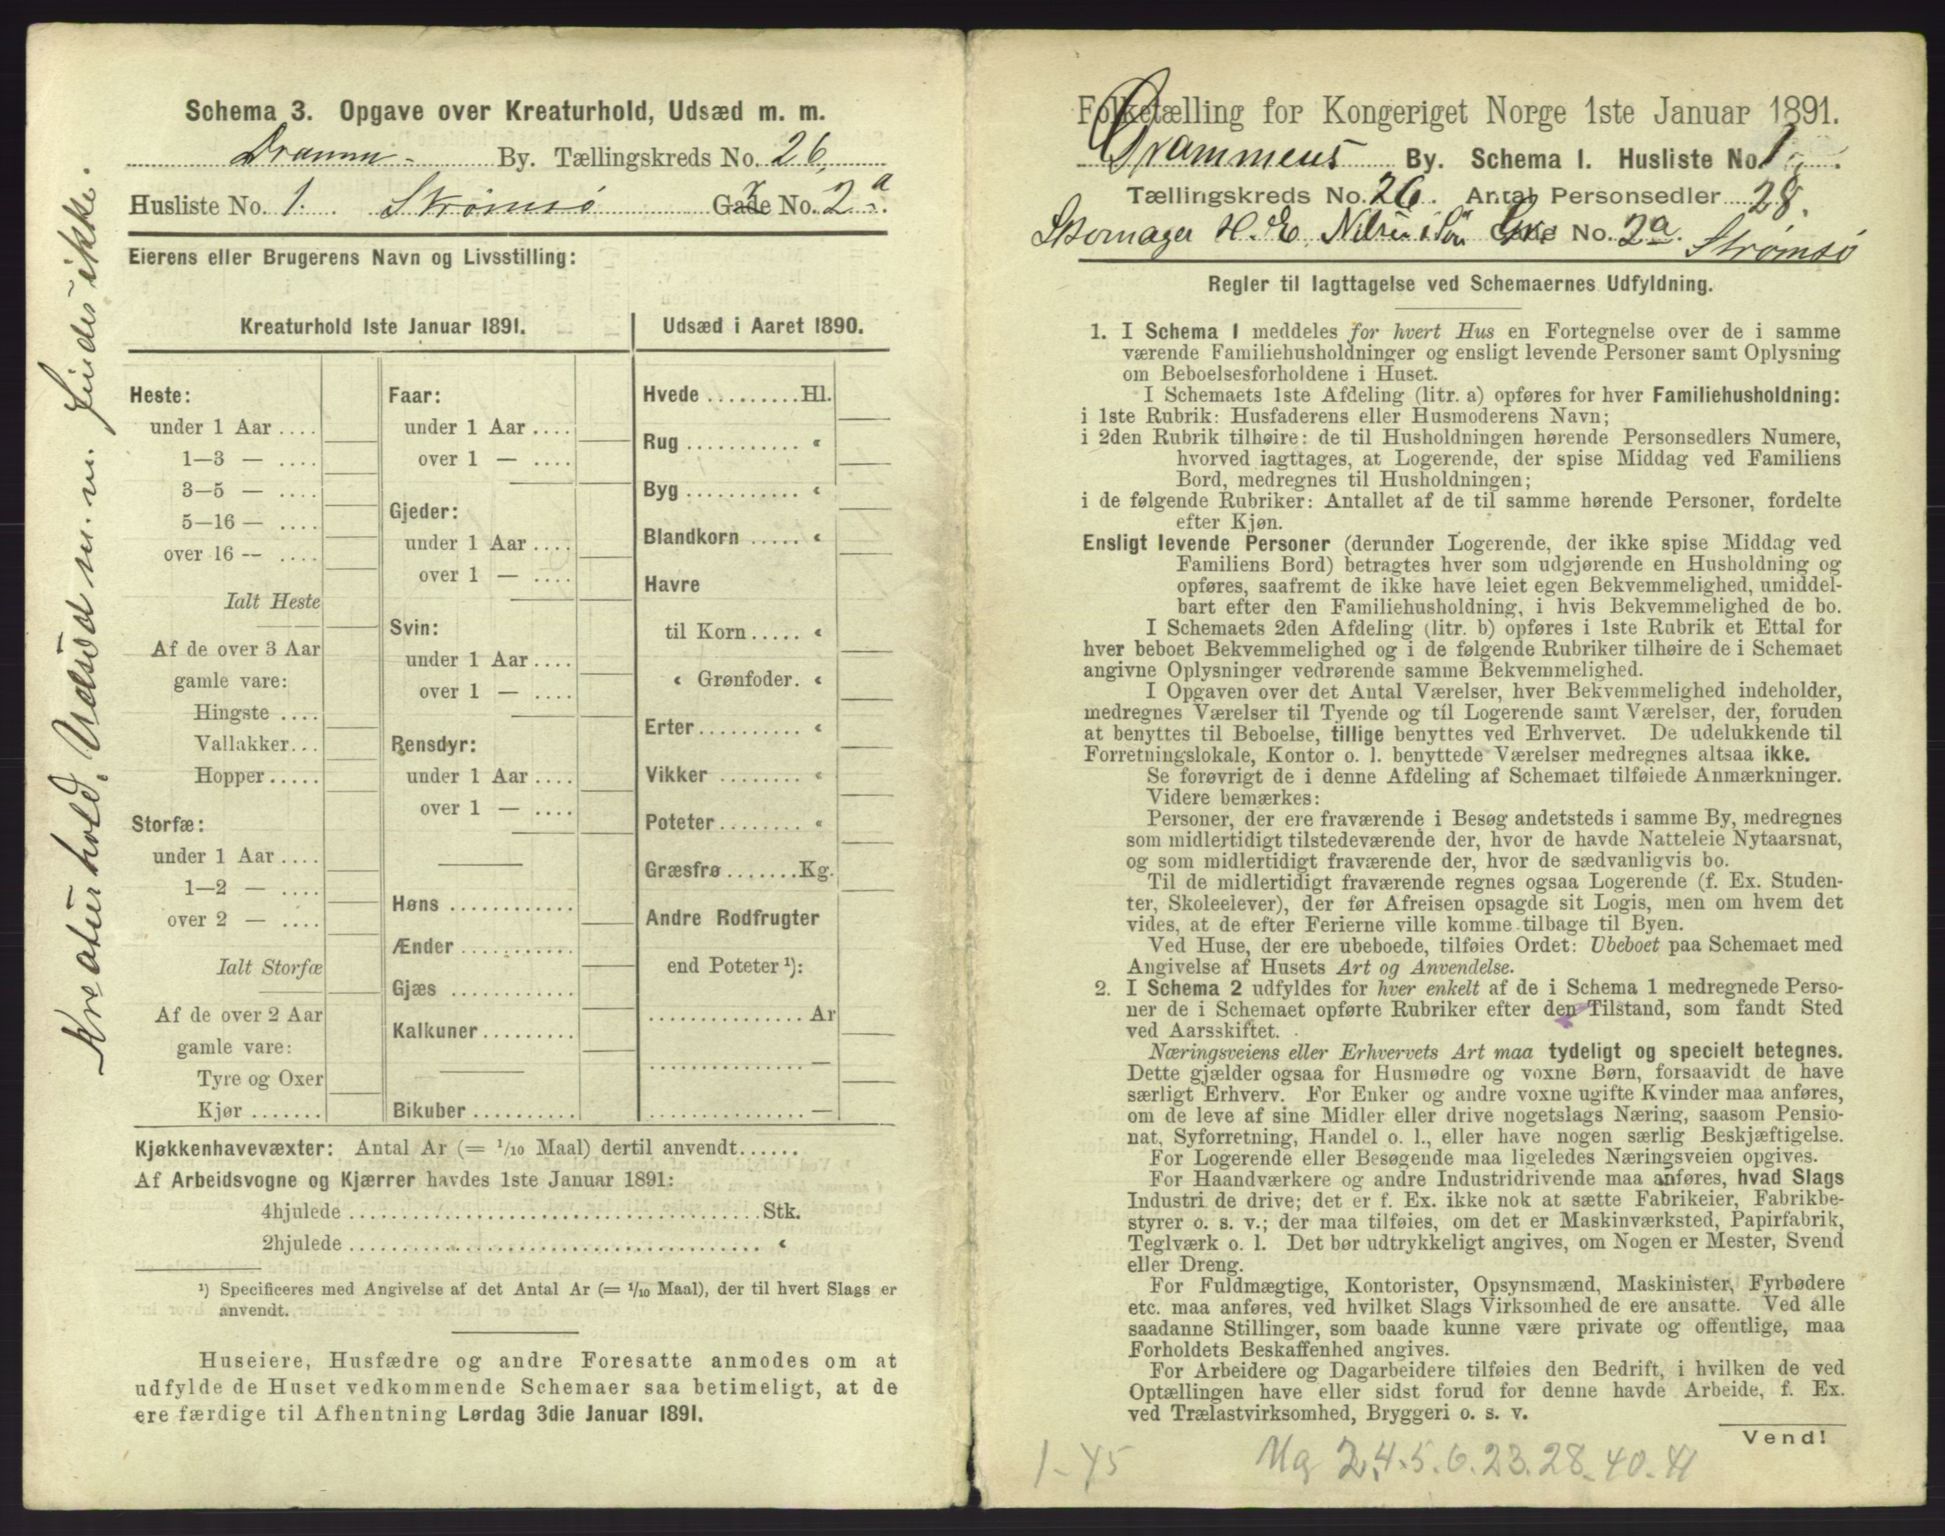 Schema 3. Opgave over Kreaturhold, Udsæd m. m.
Drammen By. Tællingskreds No. 26,
Husliste No. 1. Strømsø Gade No. 2a
Eierens eller Brugerens Navn og Livsstilling:
Kreaturhold, Udsæd m. m. findes ikke.
Kreaturhold 1ste Januar 1891.
Heste:
under 1 Aar ....
1—3 — ....
3—5 — ....
5—16 — ....
over 16 — ....
Ialt Heste
Af de over 3 Aar
gamle vare:
Hingste ....
Vallakker...
Hopper.....
Storfæ:
under 1 Aar ....
1—2 — ....
over 2 — ....
Ialt Storfæ
Af de over 2 Aar
gamle vare:
Tyre og Oxer
Kjør .......
Faar:
under 1 Aar ....
over 1 — ....
Gjeder:
under 1 Aar ....
over 1 — ....
Svin:
under 1 Aar ....
over 1 — ....
Rensdyr:
under 1 Aar ....
over 1 — ....
Høns ...........
Ænder ..........
Gjæs ...........
Kalkuner.........
Bikuber..........
Udsæd i Aaret 1890.
Hvede.........Hl.
Rug........... «
Byg........... «
Blandkorn ..... «
Havre
til Korn..... «
« Grønfoder. «
Erter.......... «
Vikker ........ «
Poteter........ «
Græsfrø.......Kg.
Andre Rodfrugter
end Poteter ¹):
...............Ar
............... —
...............—
Kjøkkenhavevæxter: Antal Ar (= 1/10 Maal) dertil anvendt......
Af Arbeidsvogne og Kjærrer havdes 1ste Januar 1891:
4hjulede ........................................Stk.
2hjulede ........................................ «
¹) Specificeres med Angivelse af det Antal Ar (= 1/10 Maal), der til hvert Slags er
anvendt.
Huseiere, Husfædre og andre Foresatte anmodes om at
udfylde de Huset vedkommende Schemaer saa betimeligt, at de
ere færdige til Afhentning Lørdag 3die Januar 1891.
Folketælling for Kongeriget Norge 1ste Januar 1891.
Drammens By. Schema 1. Husliste No. 1.
Tællingskreds No. 26. Antal Personsedler 28.
Skomager H. E. Nilsen Gade No. 2a Strømsø
Regler til Iagttagelse ved Schemaernes Udfyldning.
1. I Schema 1 meddeles for hvert Hus en Fortegnelse over de i samme
værende Familiehusholdninger og ensligt levende Personer samt Oplysning
om Beboelsesforholdene i Huset.
I Schemaets 1ste Afdeling (litr. a) opføres for hver Familiehusholdning:
i 1ste Rubrik: Husfaderens eller Husmoderens Navn;
i 2den Rubrik tilhøire: de til Husholdningen hørende Personsedlers Numere,
hvorved iagttages, at Logerende, der spise Middag ved Familiens
Bord, medregnes til Husholdningen;
i de følgende Rubriker: Antallet af de til samme hørende Personer, fordelte
efter Kjøn.
Ensligt levende Personer (derunder Logerende, der ikke spise Middag ved
Familiens Bord) betragtes hver som udgjørende en Husholdning og
opføres, saafremt de ikke have leiet egen Bekvemmelighed, umiddel-
bart efter den Familiehusholdning, i hvis Bekvemmelighed de bo.
I Schemaets 2den Afdeling (litr. b) opføres i 1ste Rubrik et Ettal for
hver beboet Bekvemmelighed og i de følgende Rubriker tilhøire de i Schemaet
angivne Oplysninger vedrørende samme Bekvemmelighed.
I Opgaven over det Antal Værelser, hver Bekvemmelighed indeholder,
medregnes Værelser til Tyende og til Logerende samt Værelser, der, foruden
at benyttes til Beboelse, tillige benyttes ved Erhvervet. De udelukkende til
Forretningslokale, Kontor o. l. benyttede Værelser medregnes altsaa ikke.
Se forøvrigt de i denne Afdeling af Schemaet tilføiede Anmærkninger.
Videre bemærkes:
Personer, der ere fraværende i Besøg andetsteds i samme By, medregnes
som midlertidigt tilstedeværende der, hvor de havde Natteleie Nytaarsnat,
og som midlertidigt fraværende der, hvor de sædvanligvis bo.
Til de midlertidigt fraværende regnes ogsaa Logerende (f. Ex. Studen-
ter, Skoleelever), der før Afreisen opsagde sit Logis, men om hvem det
vides, at de efter Ferierne ville komme tilbage til Byen.
Ved Huse, der ere ubeboede, tilføies Ordet: Ubeboet paa Schemaet med
Angivelse af Husets Art og Anvendelse.
2. I Schema 2 udfyldes for hver enkelt af de i Schema 1 medregnede Perso-
ner de i Schemaet opførte Rubriker efter den Tilstand, som fandt Sted
ved Aarsskiftet.
Næringsveiens eller Erhvervets Art maa tydeligt og specielt betegnes.
Dette gjælder ogsaa for Husmødre og voxne Børn, forsaavidt de have
særligt Erhverv. For Enker og andre voxne ugifte Kvinder maa anføres,
om de leve af sine Midler eller drive nogetslags Næring, saasom Pensio-
nat, Syforretning, Handel o. l., eller have nogen særlig Beskjæftigelse.
For Logerende eller Besøgende maa ligeledes Næringsveien opgives.
For Haandværkere og andre Industridrivende maa anføres, hvad Slags
Industri de drive; det er f. Ex. ikke nok at sætte Fabrikeier, Fabrikbe-
styrer o. s. v.; der maa tilføies, om det er Maskinværksted, Papirfabrik,
Teglværk o. l. Det bør udtrykkeligt angives, om Nogen er Mester, Svend
eller Dreng.
For Fuldmægtige, Kontorister, Opsynsmænd, Maskinister, Fyrbødere
etc. maa anføres, ved hvilket Slags Virksomhed de ere ansatte. Ved alle
saadanne Stillinger, som baade kunne være private og offentlige, maa
Forholdets Beskaffenhed angives.
For Arbeidere og Dagarbeidere tilføies den Bedrift, i hvilken de ved
Optællingen have eller sidst forud for denne havde Arbeide, f. Ex.
ved Trælastvirksomhed, Bryggeri o. s. v.
Vend!
1-45 Mg 2.4.5.6.23.28.40.41